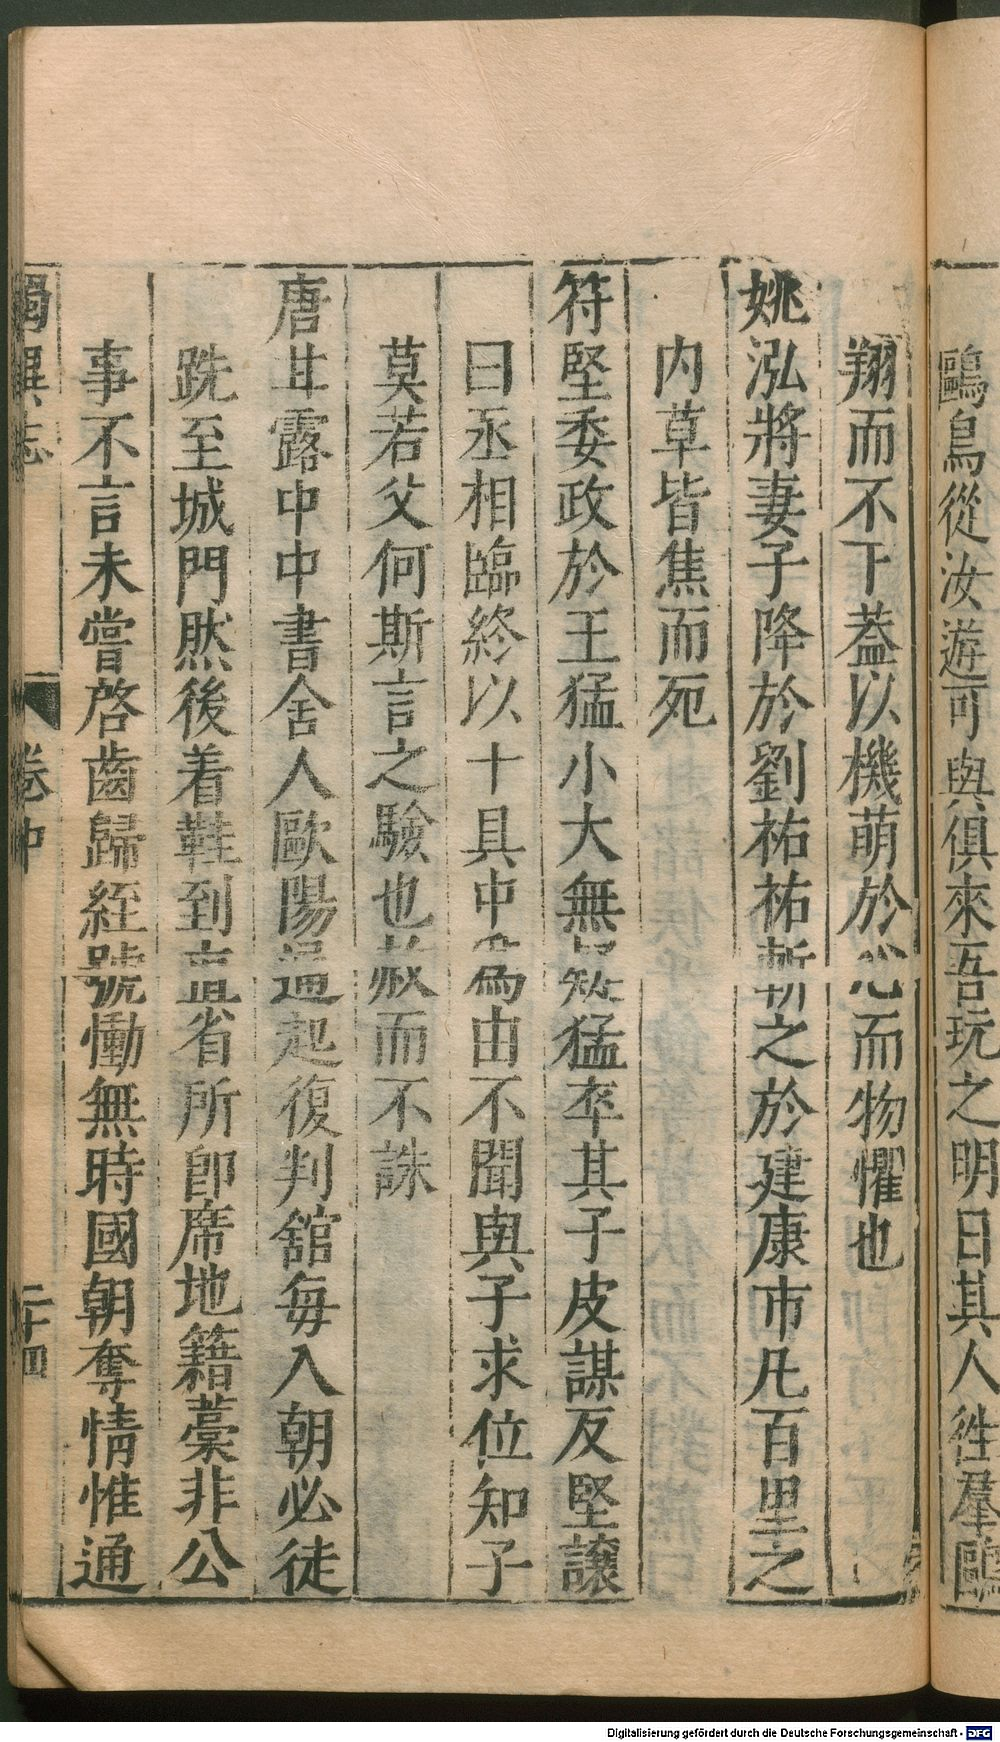 鷗鳥從汝遊可與俱來吾玩之明日其人徃羣鷗
翔而不下葢以機萌於心而物懼也
姚泓將妻子降於劉祐祐斬之於建康市凡百里之
内草皆焦而死
符堅委政於王猛小大無 猛卒其子皮謀反堅讓
曰丞相臨終以十具中爲由不聞與子求位知子
莫若父何斯言之驗也赦而不誅
唐甘露中中書舍人歐陽通起復判舘每入朝必徒
跣至城門然後着鞋到直省所卽席地籍藁非公
事不言未嘗啓齒歸絰號慟無時國朝奪情惟通
獨異志 卷中 二十四
Digitalisierung gefördert durch die Deutsche Forschungsgemeinschaft - DFG